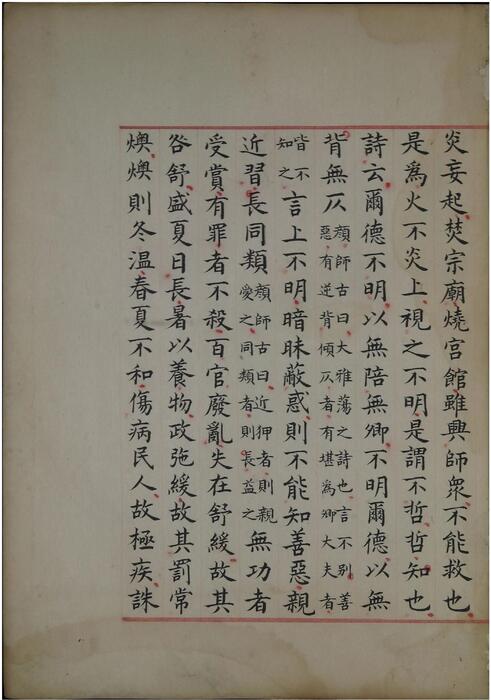 炎妄起焚宗廟燒宮館雖興師衆不能救也
是爲火不炎上視之不明是謂不哲哲知也
詩云爾德不明以無陪無卿不明爾德以無
背無仄顏師古曰大雅蕩之詩也言不別善惡有逆背傾仄者有堪爲卿大夫者
皆不知之言上不明暗昧蔽惑則不能知善惡親
近習長同類顏師古曰近狎者則親愛之同類者則長益之無功者
受賞有罪者不殺百官廢亂失在舒緩故其
咎舒盛夏日長暑以養物政弛緩故其罰常
燠燠則冬溫春夏不和傷病民人故極疾誅